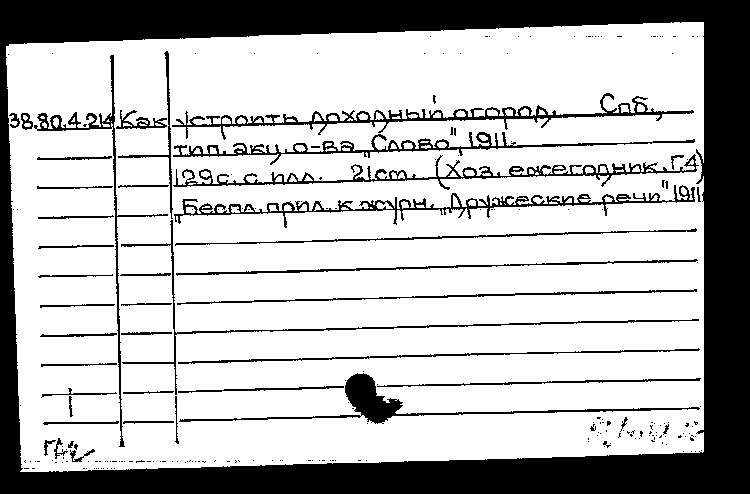 38.80.4.214 Как устроить доходный огород. Спб.,
тип. акц. о-ва "Слово", 1911.
129с. с илл. 21cm. (Хоз. ежегодник. Г.4)
"Беспл. прил. к журн. "Дружеские речи" 1911